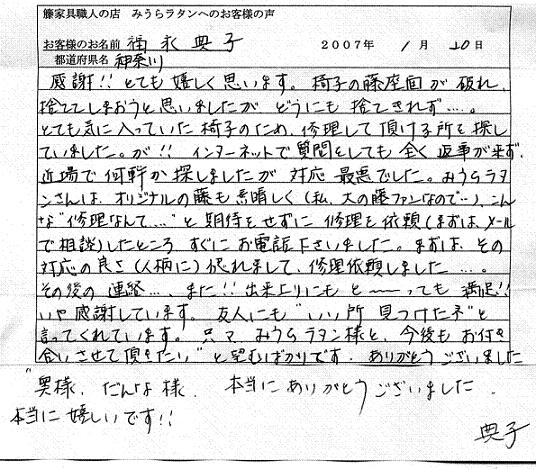 籐家具職人の店　みうらラタンへのお客様の声
お客様のお名前 福永典子 2007年 1月 20日
都道府県名 神奈川
感謝!! とても嬉しく思います。椅子の藤座面が破れ、
捨ててしまおうと思いましたが どうにも 捨てきれず…。
とても気に入っていた椅子のため、修理して頂ける所を探し
ていました。が!! インターネットで質問をしても 全く返事が来ず、
近場で何軒か探しましたが 対応 最悪でした。みうらラタ
ンさんは、オリジナルの藤も素晴しく(私、大の藤ファンなので…)、こん
な“修理なんて…..”と期待をせずに 修理を依頼(まずは、メール
で相談)したところ すぐにお電話下さいました。まずは、その
対応の良さ(人柄に)惚れまして、修理依頼しました…。
その後の連絡…、また!! 出来上りにも と〜〜っても 満足!!
いや感謝しています。友人にも“いい所見つけたネ”と
言ってくれています。只々 みうらラタン様と、今後もお付き
合いさせて頂きたい”と望むばかりです。ありがとうございました
“奥様、だんな様、本当にありがとうございました。
本当に嬉しいです!!
典子